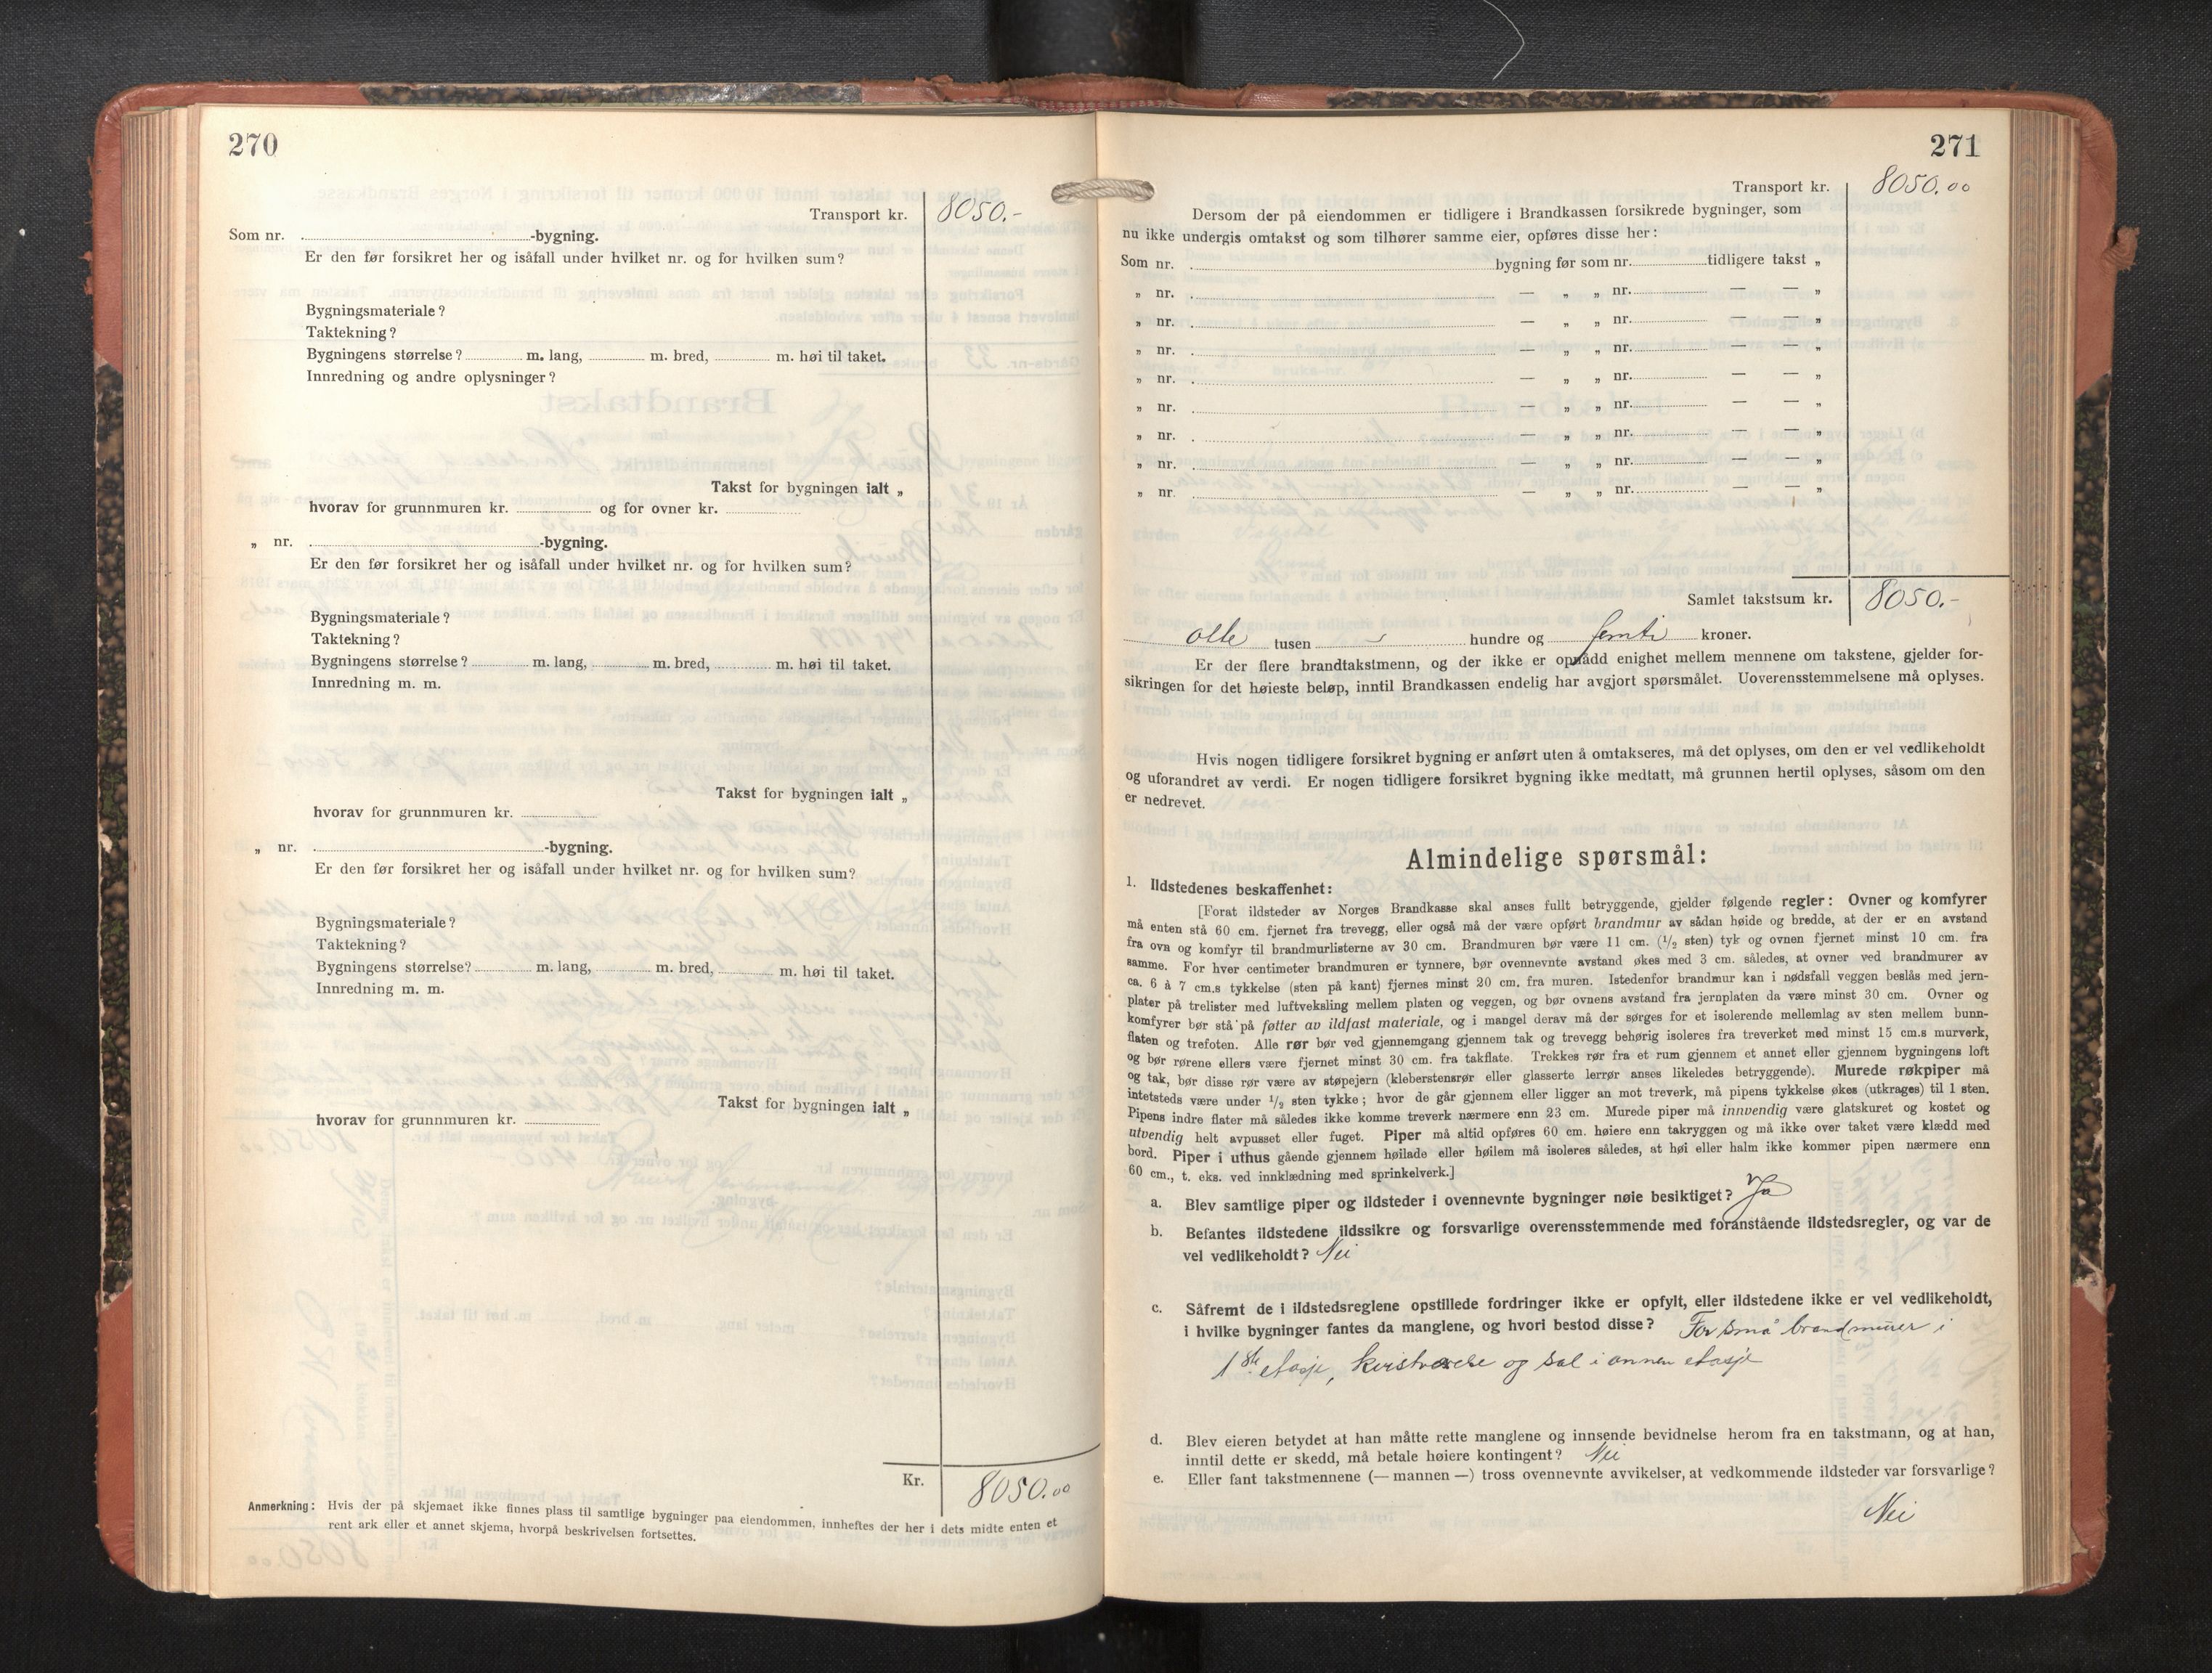 270
Transport kr. 8050.-
Som nr. -bygning.
Er den før forsikret her og isåfall under hvilket nr. og for hvilken sum?
Bygningsmateriale?
Taktekning?
Bygningens størrelse? m. lang, m. bred, m. høi til taket.
Innredning og andre oplysninger?
Takst for bygningen ialt „
hvorav for grunnmuren kr. og for ovner kr.
„ nr. -bygning.
Er den før forsikret her og isåfall under hvilket nr. og for hvilken sum?
Bygningsmateriale?
Taktekning?
Bygningens størrelse? m. lang, m. bred, m. høi til taket.
Innredning m. m.
Takst for bygningen ialt „
hvorav for grunnmuren kr.
„ nr. -bygning.
Er den før forsikret her og isåfall under hvilket nr. og for hvilken sum?
Bygningsmateriale?
Taktekning?
Bygningens størrelse? m. lang, m. bred, m. høi til taket.
Innredning m. m.
Takst for bygningen ialt „
hvorav for grunnmuren kr.
Kr. 8050.00
Anmerkning: Hvis der på skjemaet ikke finnes plass til samtlige bygninger paa eiendommen, innheftes der her i dets midte enten et
rent ark eller et annet skjema, hvorpå beskrivelsen fortsettes.
271
Transport kr. 8050.00
Dersom der på eiendommen er tidligere i Brandkassen forsikrede bygninger, som
nu ikke undergis omtakst og som tilhører samme eier, opføres disse her:
Som nr. bygning før som nr. tidligere takst „
„ nr. — „ „ nr. — — „
„ nr. — „ „ nr. — — „
„ nr. — „ „ nr. — — „
„ nr. — „ „ nr. — — „
„ nr. — „ „ nr. — — „
„ nr. — „ „ nr. — — „
„ nr. — „ „ nr. — — „
„ nr. — „ „ nr. — — „
Samlet takstsum kr. 8050.-
otte tusen - hundre og femti kroner.
Er der flere brandtakstmenn, og der ikke er opnådd enighet mellem mennene om takstene, gjelder for-
sikringen for det høieste beløp, inntil Brandkassen endelig har avgjort spørsmålet. Uoverensstemmelsene må oplyses.
Hvis nogen tidligere forsikret bygning er anført uten å omtakseres, må det oplyses, om den er vel vedlikeholdt
og uforandret av verdi. Er nogen tidligere forsikret bygning ikke medtatt, må grunnen hertil oplyses, såsom om den
er nedrevet.
Almindelige spørsmål:
1. Ildstedenes beskaffenhet:
[Forat ildsteder av Norges Brandkasse skal anses fullt betryggende, gjelder følgende regler: Ovner og komfyrer
må enten stå 60 cm. fjernet fra trevegg, eller også må der være opført brandmur av sådan høide og bredde, at der er en avstand
fra ovn og komfyr til brandmurlisterne av 30 cm. Brandmuren bør være 11 cm. (1/2 sten) tyk og ovnen fjernet minst 10 cm. fra
samme. For hver centimeter brandmuren er tynnere, bør ovennevnte avstand økes med 3 cm. således, at ovner ved brandmurer av
ca. 6 à 7 cm.s tykkelse (sten på kant) fjernes minst 20 cm. fra muren. Istedenfor brandmur kan i nødsfall veggen beslås med jern-
plater på trelister med luftveksling mellem platen og veggen, og bør ovnens avstand fra jernplaten da være minst 30 cm. Ovner og
komfyrer bør stå på føtter av ildfast materiale, og i mangel derav må der sørges for et isolerende mellemlag av sten mellem bunn-
flaten og trefoten. Alle rør bør ved gjennemgang gjennem tak og trevegg behørig isoleres fra treverket med minst 15 cm.s murverk,
og bør rørene ellers være fjernet minst 30 cm. fra takflate. Trekkes rør fra et rum gjennem et annet eller gjennem bygningens loft
og tak, bør disse rør være av støpejern (kleberstensrør eller glasserte lerrør anses likeledes betryggende). Murede røkpiper må
intetsteds være under 1/2 sten tykke; hvor de går gjennem eller ligger an mot treverk, må pipens tykkelse økes (utkrages) til 1 sten.
Pipens indre flater må således ikke komme treverk nærmere enn 23 cm. Murede piper må innvendig være glatskuret og kostet og
utvendig helt avpusset eller fuget. Piper må altid opføres 60 cm. høiere enn takryggen og må ikke over taket være klædd med
bord. Piper i uthus gående gjennem høilade eller høilem må isoleres således, at høi eller halm ikke kommer pipen nærmere enn
60 cm., t. eks. ved innklædning med sprinkelverk.]
a. Blev samtlige piper og ildsteder i ovennevnte bygninger nøie besiktiget? Ja
b. Befantes ildstedene ildssikre og forsvarlige overensstemmende med foranstående ildstedsregler, og var de
vel vedlikeholdt? Nei
c. Såfremt de i ildstedsreglene opstillede fordringer ikke er opfylt, eller ildstedene ikke er vel vedlikeholdt,
i hvilke bygninger fantes da manglene, og hvori bestod disse? For små brandmurer i
1ste etasje, kvistværelse og sal i annen etasje
d. Blev eieren betydet at han måtte rette manglene og innsende bevidnelse herom fra en takstmann, og at han,
inntil dette er skedd, må betale høiere kontingent? Nei
e. Eller fant takstmennene (— mannen —) tross ovennevnte avvikelser, at vedkommende ildsteder var forsvarlige?
Nei